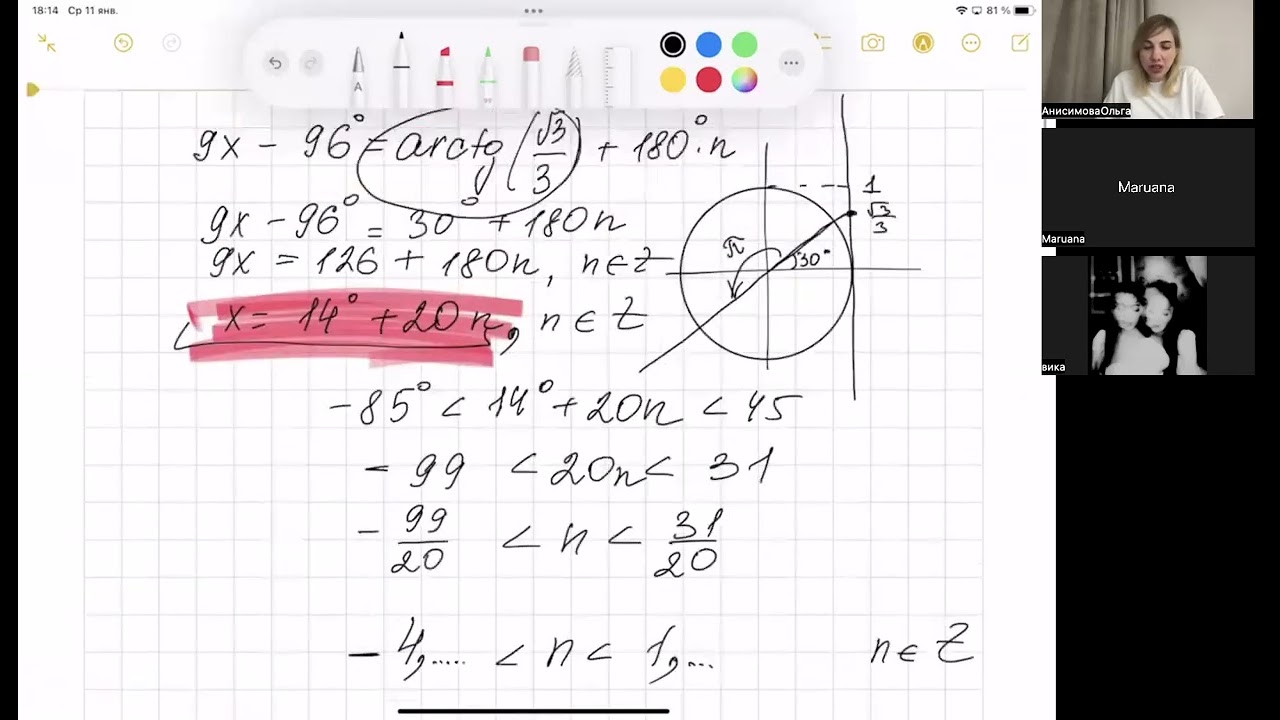 18:14 Ср 11 янв.
81 %
9x - 96° = arctg (√3/3) + 180°·n
9x - 96° = 30° + 180n
9x = 126 + 180n, n∈Z
x = 14° + 20n, n ∈ Z
-85° < 14° + 20n < 45
- 99 < 20n < 31
- 99/20 < n < 31/20
- 4,..... < n < 1,... n ∈ Z
1
√3/3
π
30°
A
АнисимоваОльга
Maruana
Maruana
вика